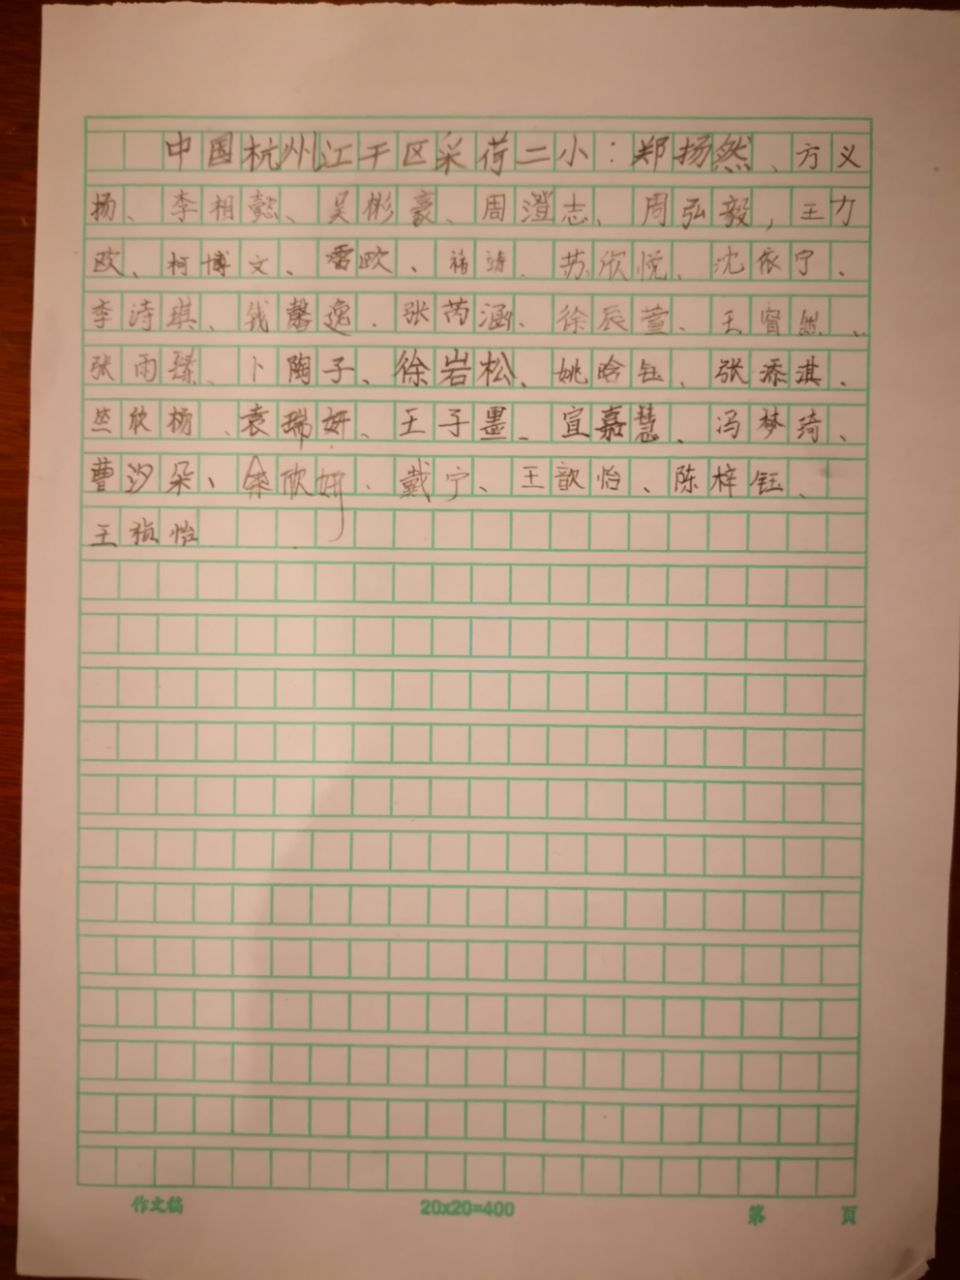 中国杭州江干区采荷二小：郑扬然、方义
扬、李相懿、吴彬豪、周澄志、周弘毅，王力
欧、柯博文、潘欧、苏欣悦、沈依宁、
李诗琪、钱馨逸、张芮涵、徐辰萱、王然、
张雨臻、卜陶子、徐岩松、姚晗钰、张添淇、
欣杨、袁瑞妍、王子墨、宣嘉慧、冯梦琦、
曹汐朵、余欣妍、戴宁、王歆怡、陈梓钰、
王祯怡
作文稿 20x20=400 第 页